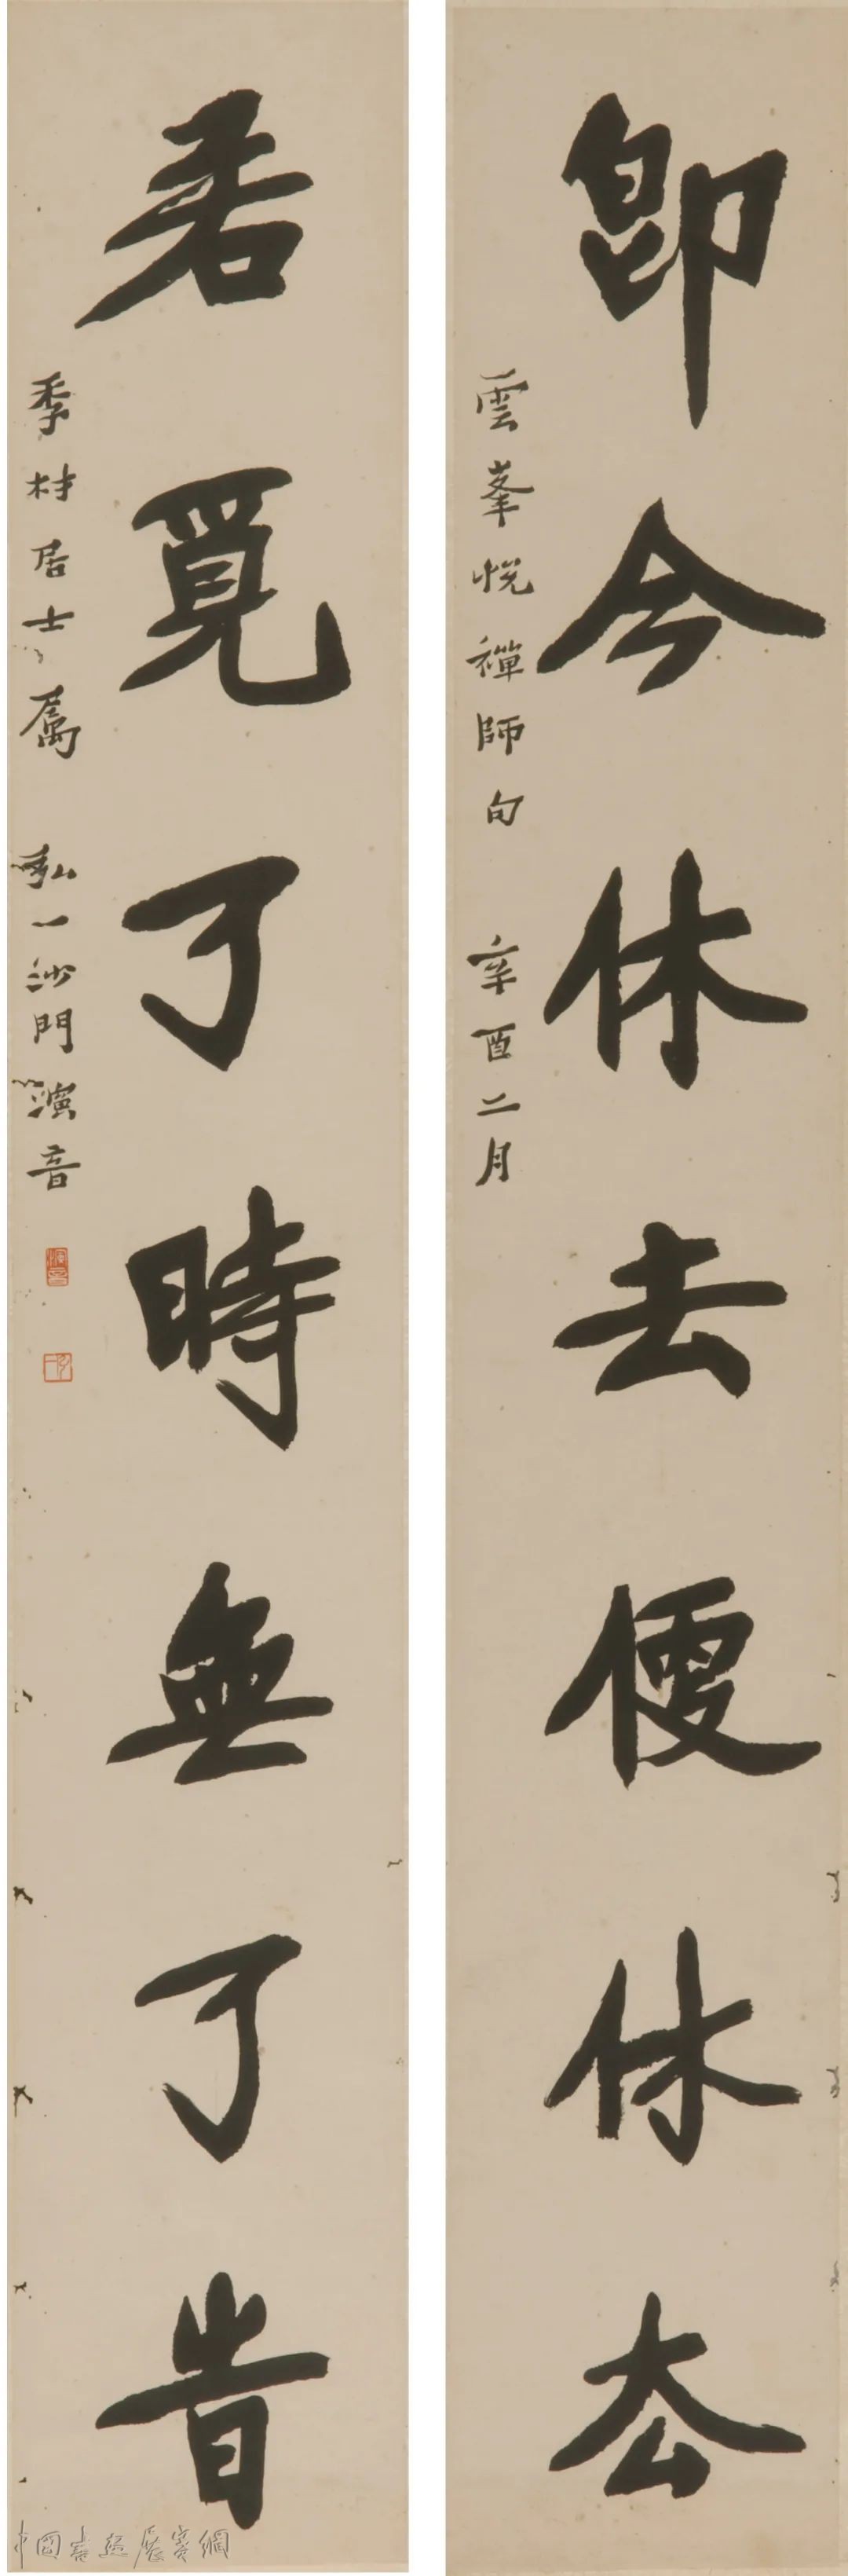 即今休去便休去
雲峯悅禪師句 辛酉二月
若覓了時無了旹
季材居士屬 弘一沙門演音
演音
中國書畫展賽網